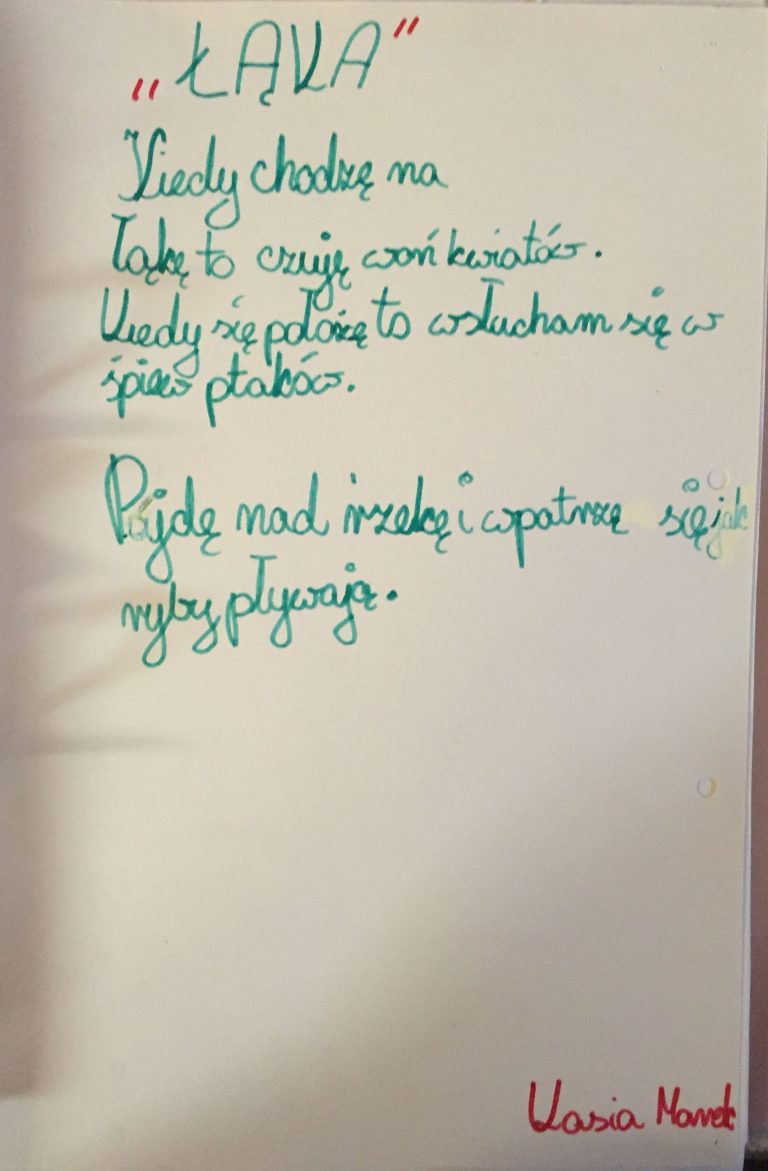 „ŁĄKA"
Kiedy chodzę na
łąkę to czuję woń kwiatów.
Kiedy się położę to wsłucham się w
śpiew ptaków.
Pójdę nad rzekę i wpatrzę się jak
ryby pływają.
Kasia Marek